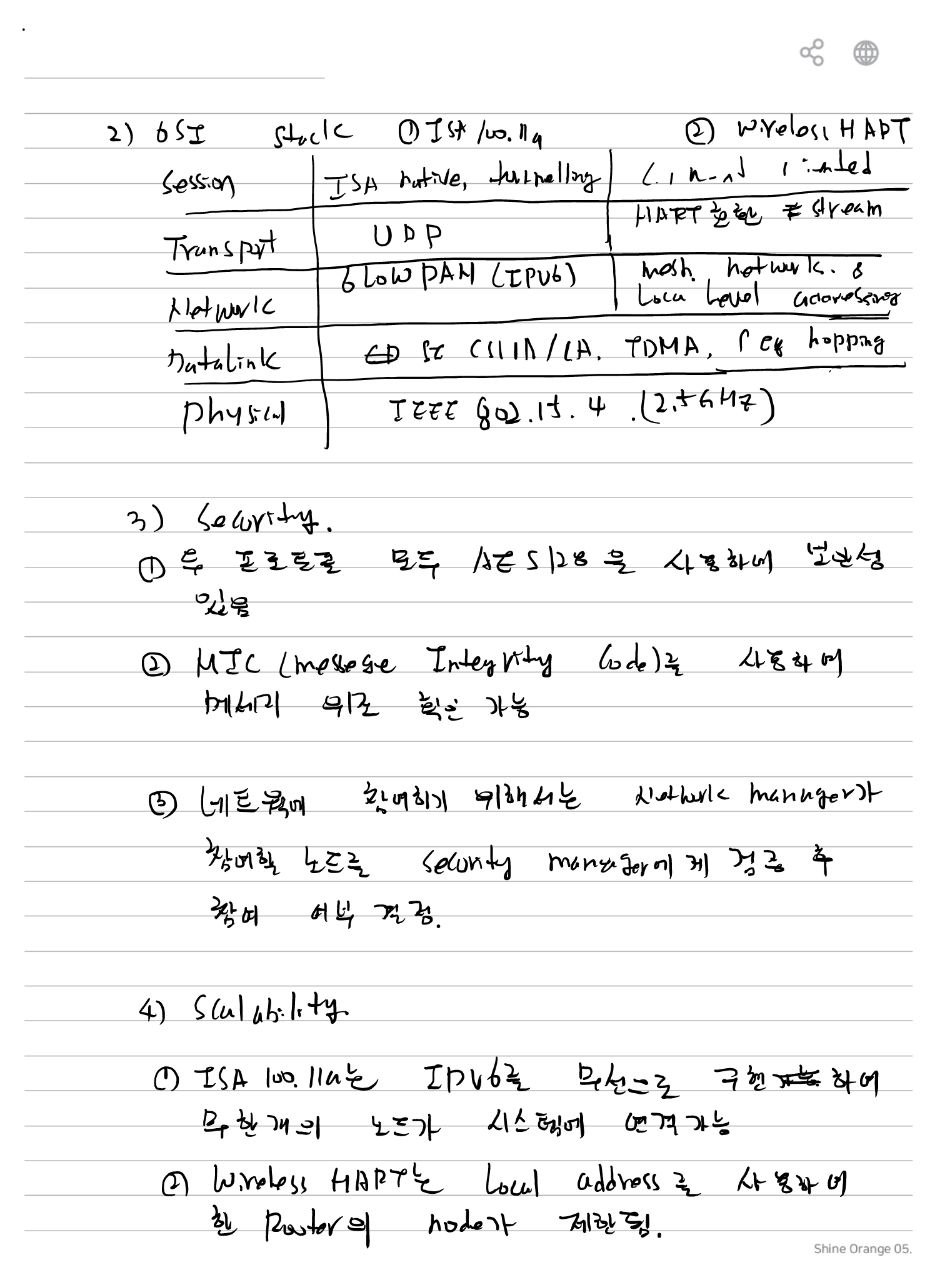 2) OSI stack ① ISA 100.11a ② Wireless HART
Session ISA native, tunnelling
HART 호환 stream
Transport UDP
6LowPAN (IPV6) mesh network &
Network Local Level addressing
Datalink CSMA/CA. TDMA, hopping
Physical IEEE 802.15.4 .(2.5GHz)
3) Security.
① 두 프로토콜 모두 AES128을 사용하여 보안성
있음
② MIC (message Integrity Code)를 사용하여
메세지 위조 확인 가능
③ 네트웍에 참여하기 위해서는 Network manager가
참여할 노드를 security manager에게 검증 후
참여 여부 결정.
4) Scalability
① ISA 100.11a는 IPV6를 무선으로 구현하여
무한개의 노드가 시스템에 연결가능
② Wireless HART는 Local address를 사용하여
한 Router의 node가 제한됨.
Shine Orange 05.